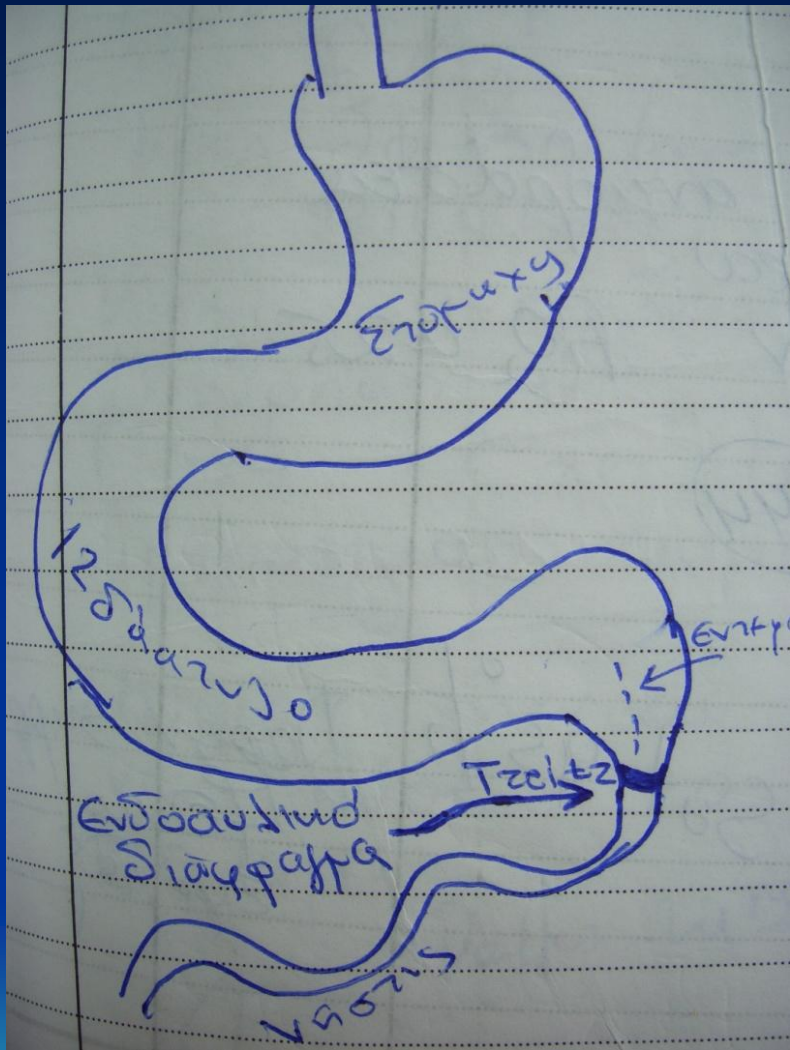 Στομαχη
12δάκτυλο
Treitz
Ενδοαυλικό
διάφραγμα
νήστις